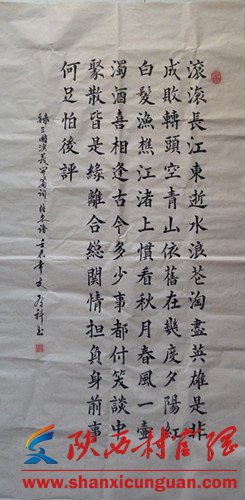 滾滾長江東逝水浪花淘盡英雄是非
成敗轉頭空青山依舊在幾度夕陽紅
白髮漁樵江渚上慣看秋月春風一壺
濁酒喜相逢古今多少事都付笑談中
聚散皆是緣離合總関情担負身前事
何足怕後評
錄三國演義 篇詞 壬辰年
陕西村官网
www.shanxicunguan.com